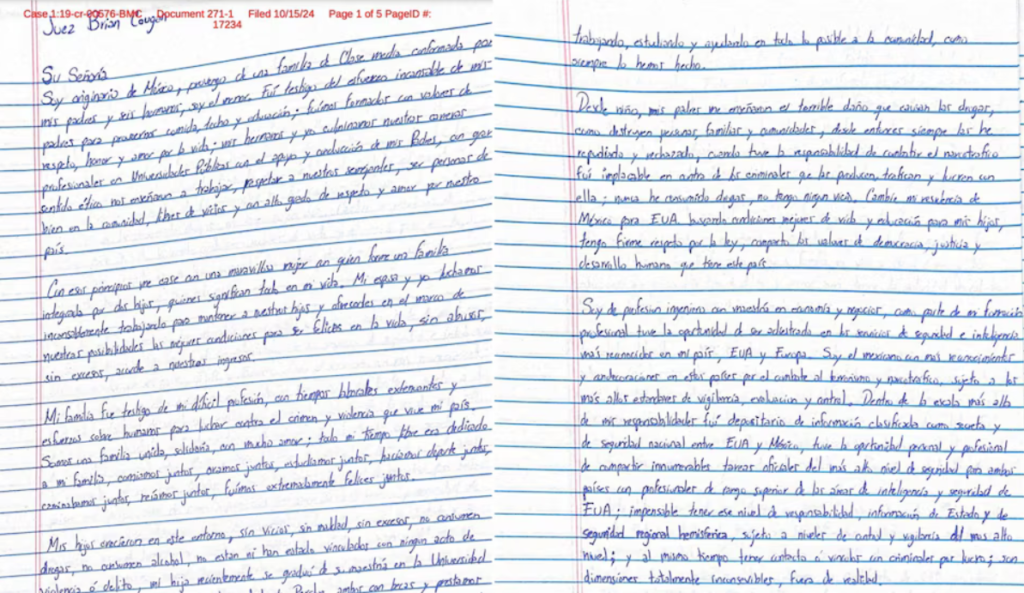 Case 1:19-cr-00576-BMC Document 271-1 Filed 10/15/24 Page 1 of 5 PageID #:
17234
Juez Brian Cougan
Su Señoría
Soy originario de México, provengo de una familia de Clase media conformada por
mis padres y seis hermanos, soy el menor. Fui testigo del esfuerzo incansable de mis
padres para proveernos comida, techo y educación; fuimos formados con valores de
respeto, honor y amor por la vida; mis hermanos y yo culminamos nuestras carreras
profesionales en Universidades Públicas con el apoyo y conducción de mis Padres, con gran
sentido ético nos enseñaron a trabajar, respetar a nuestros semejantes, ser personas de
bien en la comunidad, libres de vicios y un alto grado de respeto y amor por nuestro
país.
Con esos principios me case con una maravillosa mujer con quien forme una familia
integrada por dos hijos, quienes significan todo en mi vida. Mi esposa y yo luchamos
incansablemente trabajando para mantener a nuestros hijos y ofrecerles en el marco de
nuestras posibilidades las mejores condiciones para ser felices en la vida, sin abusos,
sin excesos, acorde a nuestros ingresos.
Mi familia fue testigo de mi difícil profesión, con tiempos laborales extenuantes y
esfuerzos sobre humanos para luchar contra el crimen y violencia que vive mi país.
Somos una familia unida, solidaria, con mucho amor; todo mi tiempo libre era dedicado
a mi familia, comíamos juntos, orabamos juntos, estudiamos juntos, hacíamos deporte juntos,
caminabamos juntos, reíamos juntos, fuimos extremadamente felices juntos.
Mis hijos crecieron en este entorno, sin vicios, sin maldad, sin excesos, no consumen
drogas, no consumen alcohol, no estan ni han estado vinculados con ningun acto de
violencia ó delito, mi hija recientemente se graduó de su maestría en la Universidad
ambos con becas y prestamos
trabajando, estudiando y ayudando en todo lo posible a la comunidad, como
siempre lo hemos hecho.
Desde niño, mis padres me enseñaron el terrible daño que causan las drogas,
como destruyen personas, familias y comunidades, desde entonces siempre las he
repudiado y rechazado, cuando tuve la responsabilidad de combatir el narcotrafico
fuí implacable en contra de los criminales que las producen, trafican y lucran con
ella; nunca he consumido drogas, no tengo nigun vicio. Cambie mi residencia de
México para EUA buscando condiciones mejores de vida y educación para mis hijos,
tengo firme respeto por la ley, comparto los valores de democracia, justicia y
desarrollo humano que tiene este país.
Soy de profesion ingeniero con maestría en economía y negocios, como parte de mi formación
profesional tuve la oportunidad de ser adiestrado en los servicios de seguridad e inteligencia
más reconocidos en mi país, EUA y Europa. Soy el mexicano con mas reconocimientos
y condecoraciones en estos países por el combate al terrorismo y narcotrafico, sujeto a los
más altos estandares de vigilancia, evaluacion y control. Dentro de la escala más alta
de mis responsabilidades fuí depositario de información clasificada como secreta y
de seguridad nacional entre EUA y México, tuve la oportunidad personal y profesional
de compartir innumerables tareas oficiales del más alto nivel de seguridad para ambos
países con profesionales de rango superior de las áreas de inteligencia y seguridad de
EUA; impensible tener ese nivel de responsabilidad, información de Estado y de
seguridad regional hemisferica, sujeto a niveles de control y vigilancia del mas alto
nivel; y al mismo tiempo tener contacto ó vinculo con criminales por lucro; son
dimensiones totalmente inconcebibles, fuera de realidad.